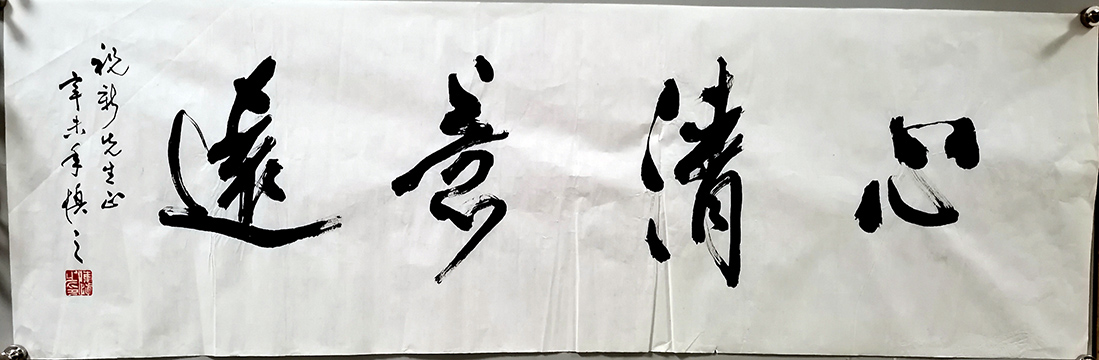 心清意遠
祝新先生正
辛未年慎之